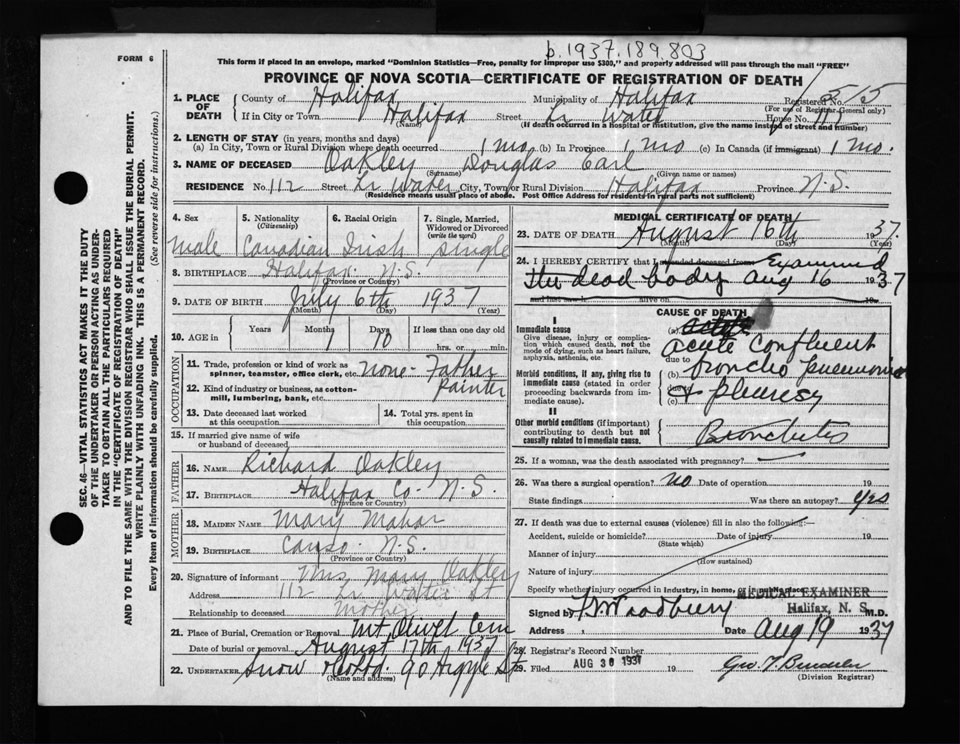 p.1937.189.803
FORM 6
This form if placed in an envelope, marked "Dominion Statistics—Free, penalty for improper use $300," and properly addressed will pass through the mail "FREE"
PROVINCE OF NOVA SCOTIA—CERTIFICATE OF REGISTRATION OF DEATH
1. PLACE OF DEATH
County of Halifax Municipality of Halifax Registered No. 515
(For use of Registrar General only)
If in City or Town Halifax Street Lr Water House No.
(Name) (If death occurred in a hospital or institution, give the name instead of street and number)
2. LENGTH OF STAY (in years, months and days)
(a) In City, Town or Rural Division where death occurred 1 mo (b) In Province 1 mo (c) In Canada (if immigrant) 1 mo.
3. NAME OF DECEASED Oakley Douglas Earl
(Surname) (Given name or names)
RESIDENCE No. 112 Street Lr Water City, Town or Rural Division Halifax Province N.S.
(Residence means usual place of abode. Post Office Address for residents in rural parts not sufficient)
4. Sex 5. Nationality (Citizenship) 6. Racial Origin 7. Single, Married, Widowed or Divorced (write the word)
Male Canadian Irish Single
8. BIRTHPLACE Halifax N.S.
(Province or Country)
9. DATE OF BIRTH July 6th 1937
(Month) (Day) (Year)
10. AGE in Years Months Days If less than one day old
1 10 hrs. or min.
OCCUPATION
11. Trade, profession or kind of work as spinner, teamster, office clerk, etc. none - Father
12. Kind of industry or business, as cotton-mill, lumbering, bank, etc. Painter
13. Date deceased last worked at this occupation 14. Total yrs. spent in this occupation
15. If married give name of wife or husband of deceased
FATHER
16. NAME Richard Oakley
17. BIRTHPLACE Halifax Co. N.S.
(Province or Country)
MOTHER
18. MAIDEN NAME Mary Mahar
19. BIRTHPLACE Canso N.S.
(Province or Country)
20. Signature of informant Mrs Mary Oakley
Address 112 Lr Water St
Relationship to deceased Mother
21. Place of Burial, Cremation or Removal Mt Olivet Cem
Date of burial or removal August 17th 1937
22. UNDERTAKER Snow & Co Ltd. 90 Argyle St
(Name and address)
MEDICAL CERTIFICATE OF DEATH
23. DATE OF DEATH August 16th 1937.
(Month) (Day) (Year)
24. I HEREBY CERTIFY that I attended deceased from Examined
the dead body Aug 16 1937
and last saw h alive on 19
CAUSE OF DEATH
I
Immediate cause
Give disease, injury or complication which caused death, not the mode of dying, such as heart failure, asphyxia, asthenia, etc.
(a) acute
acute confluent
due to
Morbid conditions, if any, giving rise to immediate cause (stated in order proceeding backwards from immediate cause).
(b) broncho pneumonia
due to
(c) & pleurisy
II
Other morbid conditions (if important) contributing to death but not causally related to immediate cause.
Bronchitis
25. If a woman, was the death associated with pregnancy?
26. Was there a surgical operation? no Date of operation 19
State findings Was there an autopsy? yes
27. If death was due to external causes (violence) fill in also the following:—
Accident, suicide or homicide? Date of injury 19
(State which)
Manner of injury
(How sustained)
Nature of injury
Specify whether injury occurred in industry, in home, or in public place
MEDICAL EXAMINER
Halifax, N. S.
Signed by Woodbury M.D.
Address Date Aug 19 1937
28. Registrar's Record Number
29. Filed AUG 30 1937 19
(Division Registrar)
SEC. 46—VITAL STATISTICS ACT MAKES IT THE DUTY
OF THE UNDERTAKER OR PERSON ACTING AS UNDERTAKER TO OBTAIN ALL THE PARTICULARS REQUIRED
IN THE "CERTIFICATE OF REGISTRATION OF DEATH"
AND TO FILE THE SAME WITH THE DIVISION REGISTRAR WHO SHALL ISSUE THE BURIAL PERMIT.
WRITE PLAINLY WITH UNFADING INK. THIS IS A PERMANENT RECORD.
Every item of information should be carefully supplied. (See reverse side for instructions.)